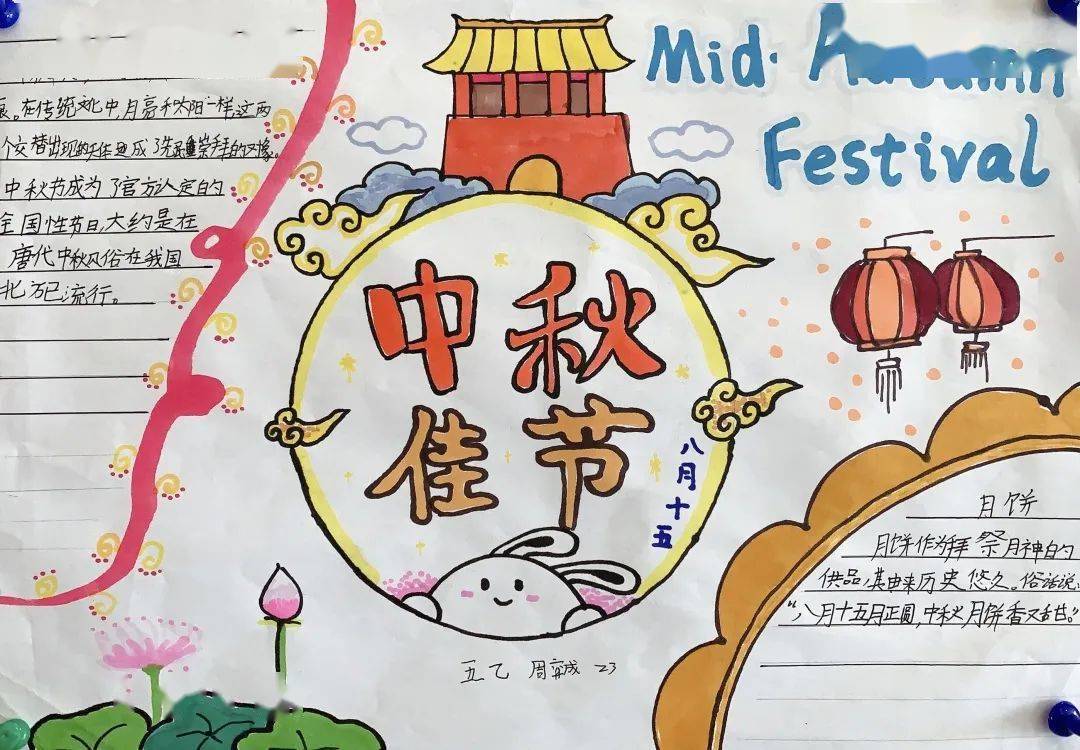 Mid-Autumn
Festival
在传统文化中,月亮和太阳一样,这两
个交替出现的
中秋节成为了官方认定的
全国性节日,大约是在
唐代中秋风俗在我国
北方已流行。
中秋
佳节
八月十五
月饼
月饼作为拜祭月神的
供品,其由来历史悠久。俗话说:
“八月十五月正圆,中秋月饼香又甜。”
五乙 周 23